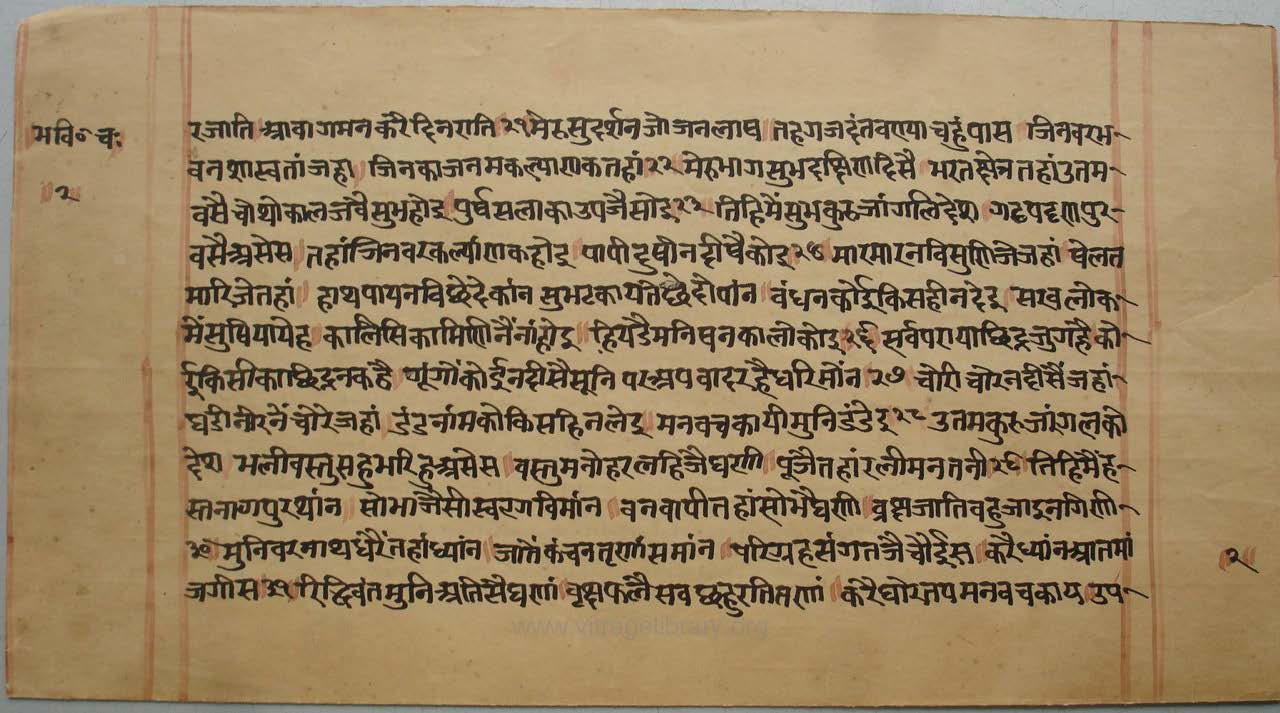 भवि॰ च॰
२
रजाति ॥आवागमन करै दिन राति २१ मेरु सुदर्शन जोजन लाष ॥तह गजदंत वण्या चहुं पास ॥जिनवर भ-
वन शास्वतां जहां ॥जिन का जनम कल्याणक तहां २२ मेरु भाग सुभ दक्षिण दिसै ॥भरत क्षेत्र तहां उतम-
वसै चोथो काल जवै सुभ होइ ॥पुर्ष सलाका उपजै सोइ २३ तिहि मैं सुभ कुरु जांगलि देश ॥गढ पट्टण पुर-
वसै असेस ॥तहां जिनवर कल्याणक होइ ॥पापी दुषी न दीषै कोइ २४ मार मार नवि सुणिजे जहां ॥षेलत
मारि जे तहां ॥हाथ पाय नवि छेदे कांन ॥सुभट काय ते छेदै पांन ॥वंधन कोई किसही न देइ ॥सखलोक-
मैं सुषिया येह ॥कालिसि कामिणि नैंनां होइ ॥हियडै मनिष न कालो कोइ २६ सर्व पराया छिद्र जु गहै को-
ई किसी का छिद्र न कहै ॥गूंगौ कोई न दीसै सूनि ॥पर अपवाद रहै धरि मोंन २७ चोरी चोर न दीसै जहां-
घडी नीर नें चोरे जहां ॥डंड नांम को किसहि न लेइ ॥मन वच काय मुनि डंडेइ २८ उतम कुरु जांगल को
देश ॥भली वस्तु सहु भरिहु असेस ॥वस्तु मनोहर लहि जै घणी ॥पूजै तहां रली मन तनी २९ तिहि मैं ह-
स्तनागपुर थांन ॥सोभा जैसी स्वरग विमांन ॥वन वापी तहां सोभै घणी ॥व्रक्ष जाति वहु जाइ न गिणी-
३० मुनिवर नाथ धरैं तहां ध्यांन ॥जांणे कंचन तृण समांन ॥परिग्रह संग तजै चौईस ॥करै ध्यांन आतमां
जगीस ३१ रिद्धिवंत मुनि अतिसै घणां ॥वृक्ष फलै सव छहु रति तणां ॥करै घोर तप मन वच काय ॥उप-
२
www.vitragelibrary.org